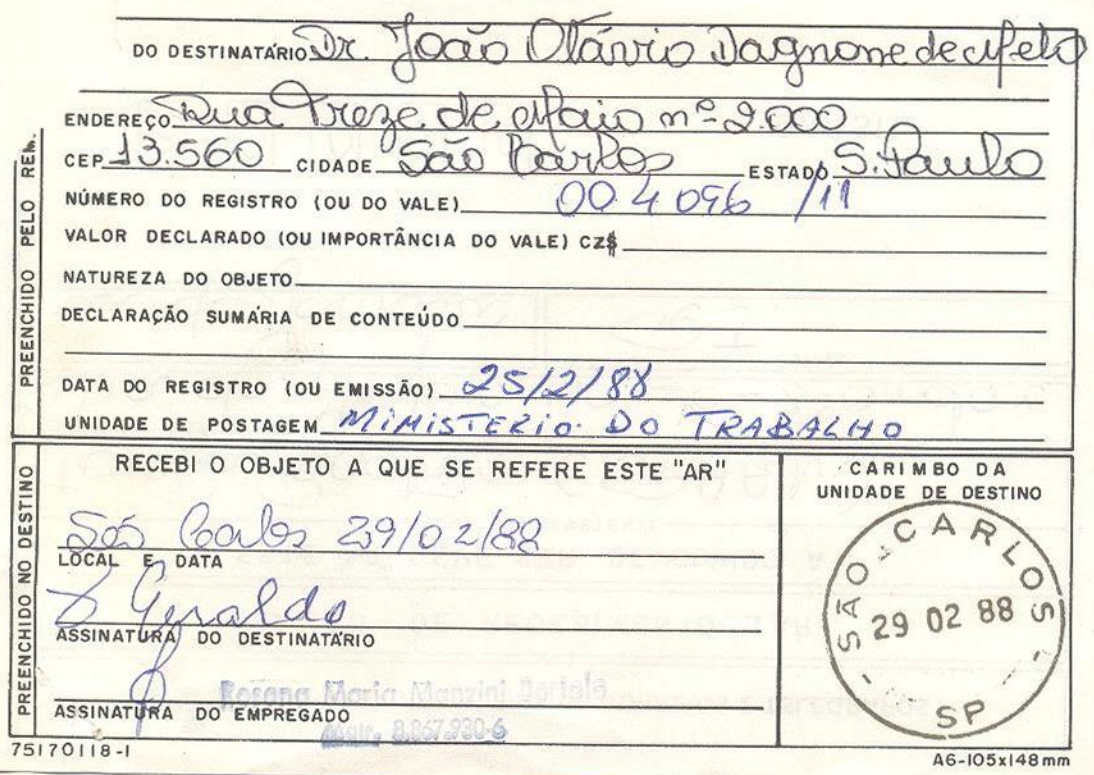 DO DESTINATÁRIO Dr. João Otávio Dagnone de Melo
ENDEREÇO Rua Treze de Maio nº 2.000
CEP 13.560 CIDADE São Carlos ESTADO S. Paulo
NÚMERO DO REGISTRO (OU DO VALE) 004096 /11
VALOR DECLARADO (OU IMPORTÂNCIA DO VALE) CZ$
NATUREZA DO OBJETO
DECLARAÇÃO SUMÁRIA DE CONTEÚDO
DATA DO REGISTRO (OU EMISSÃO) 25/2/88
UNIDADE DE POSTAGEM MINISTERIO DO TRABALHO
PREENCHIDO PELO REM.
RECEBI O OBJETO A QUE SE REFERE ESTE "AR"
São Carlos 29/02/88
LOCAL E DATA
Geraldo
ASSINATURA DO DESTINATÁRIO
Rosana Maria Manzini
ASSINATURA DO EMPREGADO
8.867.930-6
PREENCHIDO NO DESTINO
CARIMBO DA
UNIDADE DE DESTINO
SÃO CARLOS
29 02 88
SP
75170118-1
A6-105x148mm